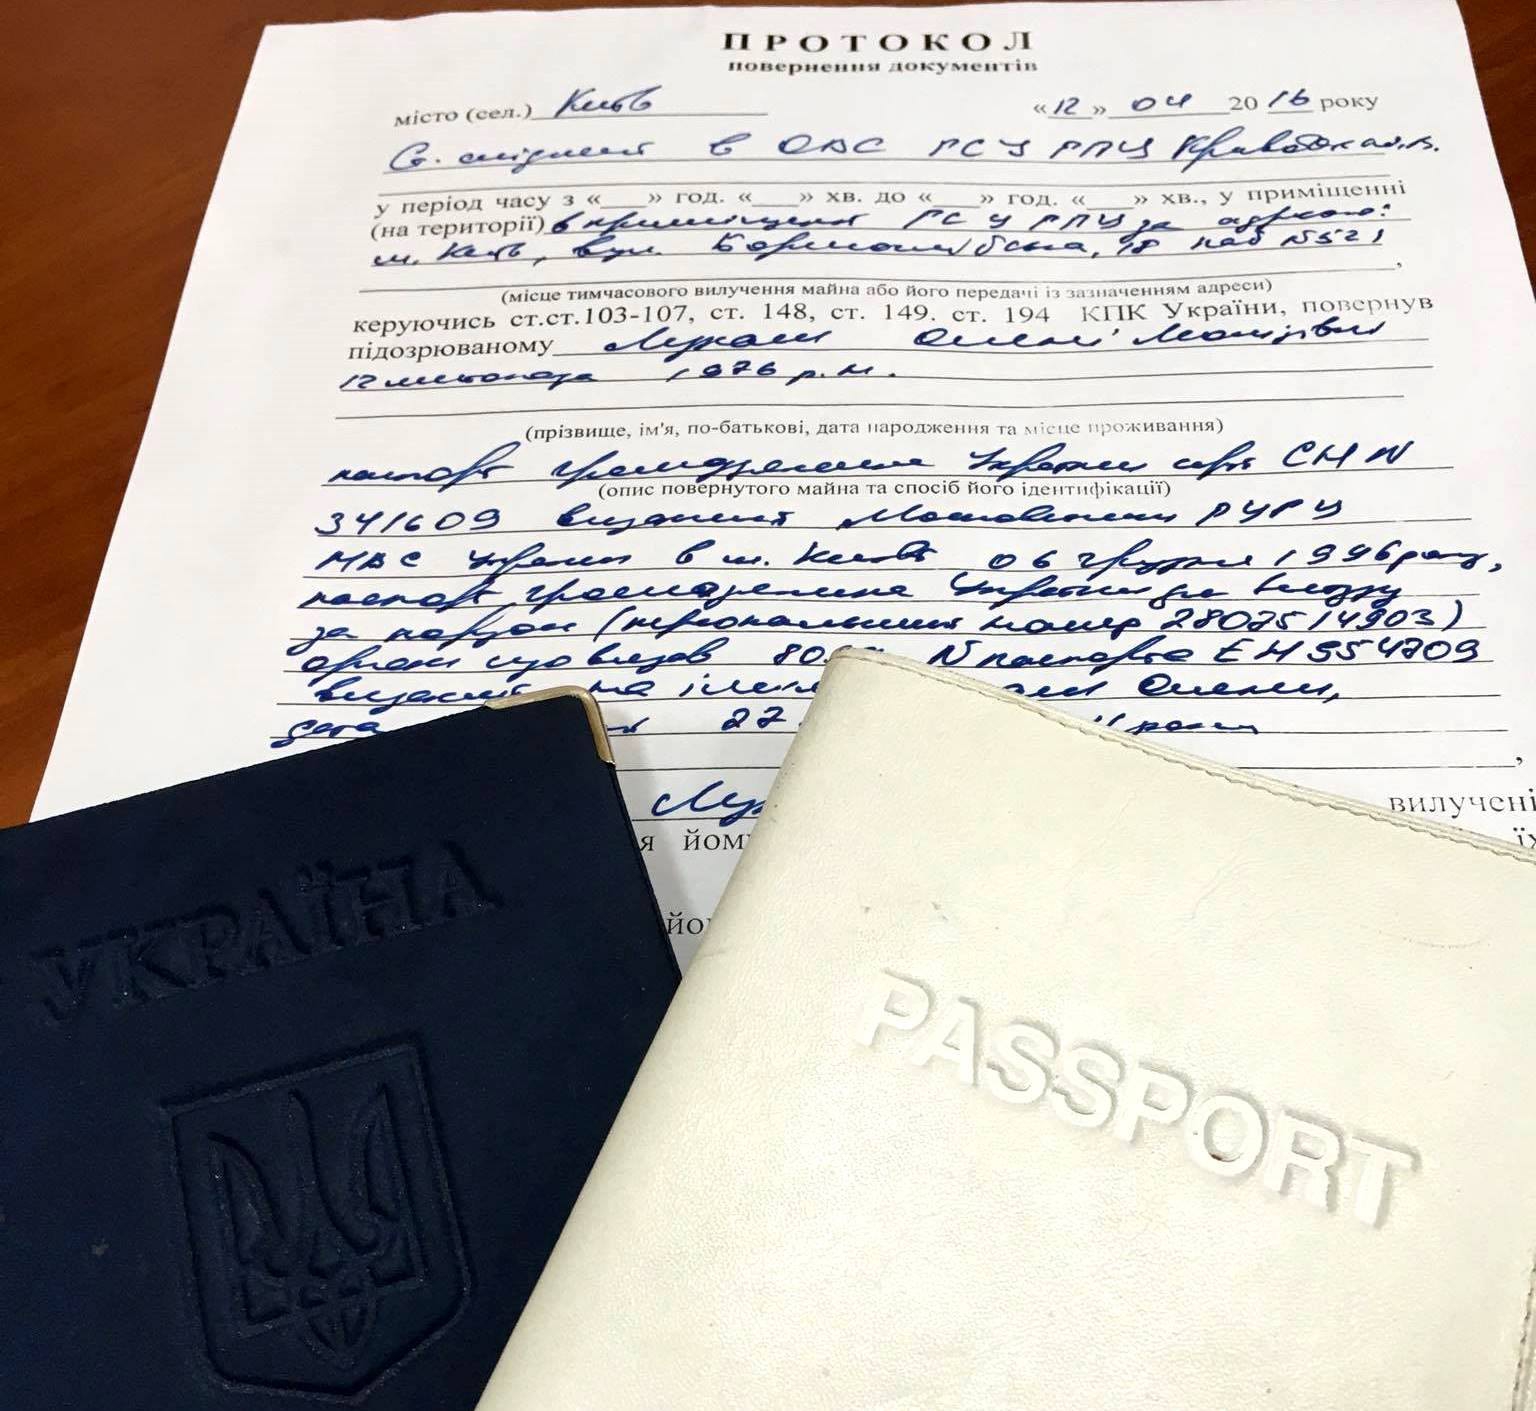 ПРОТОКОЛ
повернення документів
місто (сел.) Київ «12» 04 2016 року
Ст. слідчий в ОВС ГСУ ГПУ
у період часу з «___» год. «___» хв. до «___» год. «___» хв., у приміщенні
(на території) в приміщенні ГСУ ГПУ за адресою:
м. Київ, вул. Борисоглібська, 18 каб №521
(місце тимчасового вилучення майна або його передачі із зазначенням адреси)
керуючись ст.ст.103-107, ст. 148, ст. 149. ст. 194 КПК України, повернув
підозрюваному Лукаш Олені Леонідівні
12 листопада 1976 р.н.
(прізвище, ім'я, по-батькові, дата народження та місце проживання)
паспорт громадянина України серії СН №
(опис повернутого майна та спосіб його ідентифікації)
341609 виданий Московським РУГУ
МВС України в м. Києві 06 грудня 1996 року,
паспорт громадянина України для виїзду
за кордон (персональний номер 2807514903)
орган що видав 80 № паспорта ЕН554709
виданий на ім'я Олени,
дата 22 року
вилучені
йому
їх
УКРАЇНА
PASSPORT